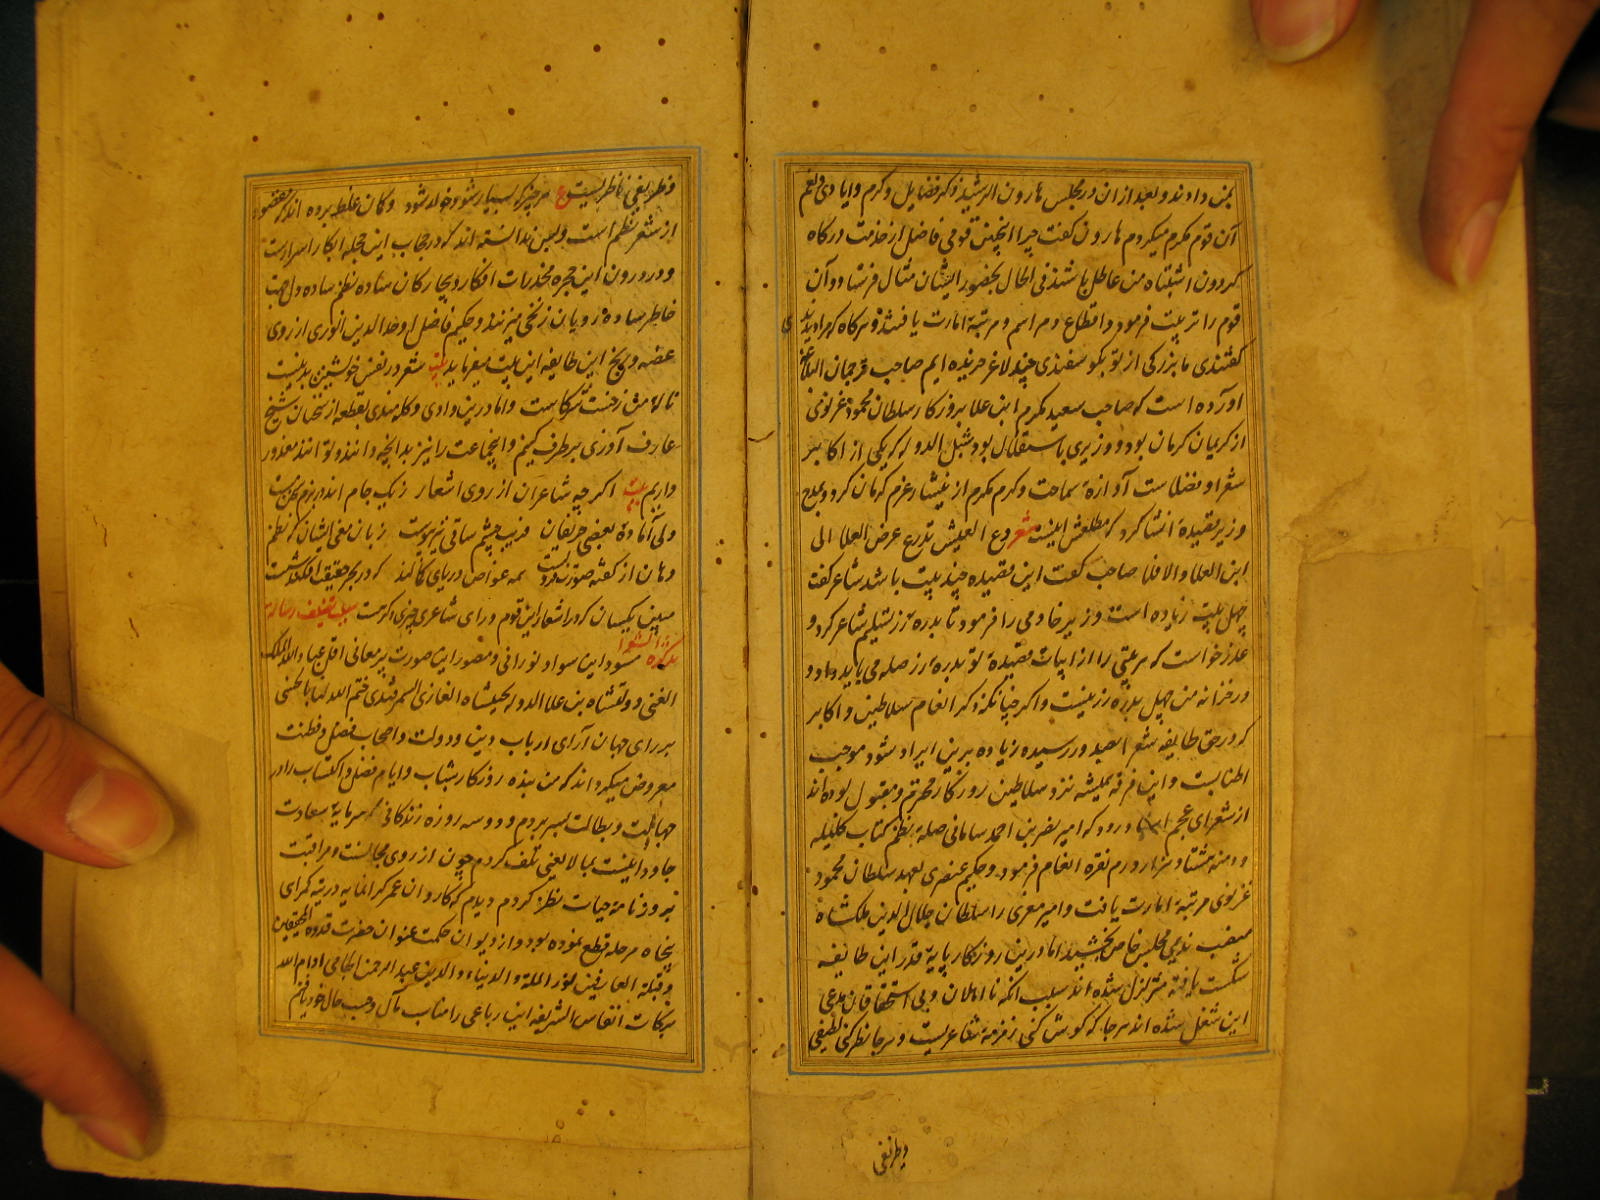 بمن دادند و بعد از ان در مجلس هارون الرشید ذکر فضایل و کرم و ایادی و نعم
آن قوم مکرم میکردم هارون کفت چرا اینچنین قومی فاضل از خدمت درکاه
کردون اشتباه من عاطل باشند فی الحال بحضور ایشان مثال فرستاد و آن
قوم را تربیت فرمود و اقطاع و مراسم و مرتبهٔ امارت یافتند و هرکاه که مرا دیدندی
کفتندی ما بزرکی از تو بکوسفندی چند لاغر خریده ایم صاحب ترجمان البلاغه
آورده است که صاحب سعید مکرم ابن علا بروزکار سلطان محمود غزنوی
از کریمان کرمان بود و وزیری باستقلال بود شبل الدوله که یکی از اکابر
شعرا و فضلاست آوازهٔ سماحت و کرم مکرم از نیشابر عزم کرمان کرد و بمدح
وزیر قصیدهٔ انشا کرد که مطلعش اینست شعر دع العیش تدرع عرض الفلا الی
ابن العلا و الا فلا صاحب کفت این قصیده چند بیت باشد شاعر کفت
چهل بیت زیاده است وزیر خادمی را فرمود تا بدرهٔ زر تسلیم شاعر کرد و
عذر خواست که هر بیتی را از ابیات قصیدهٔ تو بدرهٔ زر صله می باید داد و
در خزانه من چهل بدرهٔ زر نیست و اکر چنانکه ذکر انعام سلاطین و اکابر
که در حق طایفه شعرا بعید و رسیده زیاده برین ایراد شود موجب
اطنابست و این فرقه همیشه نزد سلاطین روزکار محترم و مقبول بوده اند
از شعرای عجم استاد رودکی امیر نصر بن احمد سامانی صلهٔ نظم کتاب کلیله
و دمنه هشتاد هزار درم نقره انعام فرمود و حکیم عنصری بعهد سلطان محمود
غزنوی مرتبهٔ امارت یافت و امیر معزی را سلطان جلال الدین ملکشاه
منصب ندیمی مجلس خاص بخشید اما درین روزکار پایهٔ قدر این طایفه
شکست یافته متزلزل شده اند سبب آنکه نااهلان و بی استحقاقان مدعی
این شغل شده اند هرجا که کوش کنی زمزمهٔ شاعریست و هرجا نظر کنی لطیفی
و ظریفی
و ظریفی ناظریست ع هر چیز که بسیار شود خوار شود و کمان غلط برده اند که مقصود
از شعر نظم است و بس ندانسته اند که در حجاب این حجله ابکار اسرارست
و در درون این حجره مخدرات افکار و بیچارکان ساده نظم ساده دل بجهت
خاطر ساده رویان زنخی میزنند و حکیم فاضل اوحد الدین انوری از روی
غصه و رنج این طایفه این بیت میفرماید بیت شعر در نفس خویشتن بد نیست
نالهٔ من ز خست شرکاست و اما درین وادی و کله مندی بقطعه از سخنان شیخ
عارف آذری برطرف کنیم و اینجماعت را نیز بدانچه دانند و توانند معذور
داریم بیت اکرچه شاعران از روی اشعار ز یک جام اند در بزم سخن مست
ولی با بادهٔ بعضی حریفان فریب چشم ساقی نیز پیوست زبان معنی ایشان که نظم
دهان از کفتهٔ صورت فروبست همه غواص دریای کمالند که در بحر حقیقت افکند شست
مبین یکسان که در اشعار این قوم ورای شاعری چیزی دکر هست سبب تصنیف رساله
تذکرة الشعرا مسود این سواد نورانی و مصور این صورت پرمعانی اقل عباد الله الملک
الغنی دولتشاه بن علا الدوله بختیشاه الغازی السمرقندی ختم الله لهما بالحسنی
بر رای جهان آرای ارباب دین و دولت و اصحاب فضل و فطنت
معروض میکرداند که من بنده روزکار شباب و ایام فضل و اکتساب را در
جهالت و بطالت بسر بردم و دو سه روزه زندکانی که سرمایهٔ سعادت
جاودانیست بما لا یعنی تلف کردم چون از روی محاسبت و مراقبت
بروزنامهٔ حیات نظر کردم دیدم که کاروان عمر کرانمایه در تیه کمراهی
پنجاه مرحله قطع نموده بود و از دیوان حکمت عنوان حضرت قدوه المحققین
و قبلة العارفین نور الملة و الدنیا و الدین عبد الرحمن الجامی ادام الله
برکات انفاس الشریفه این رباعی را مناسب مآل و حسب حال خود یافتم